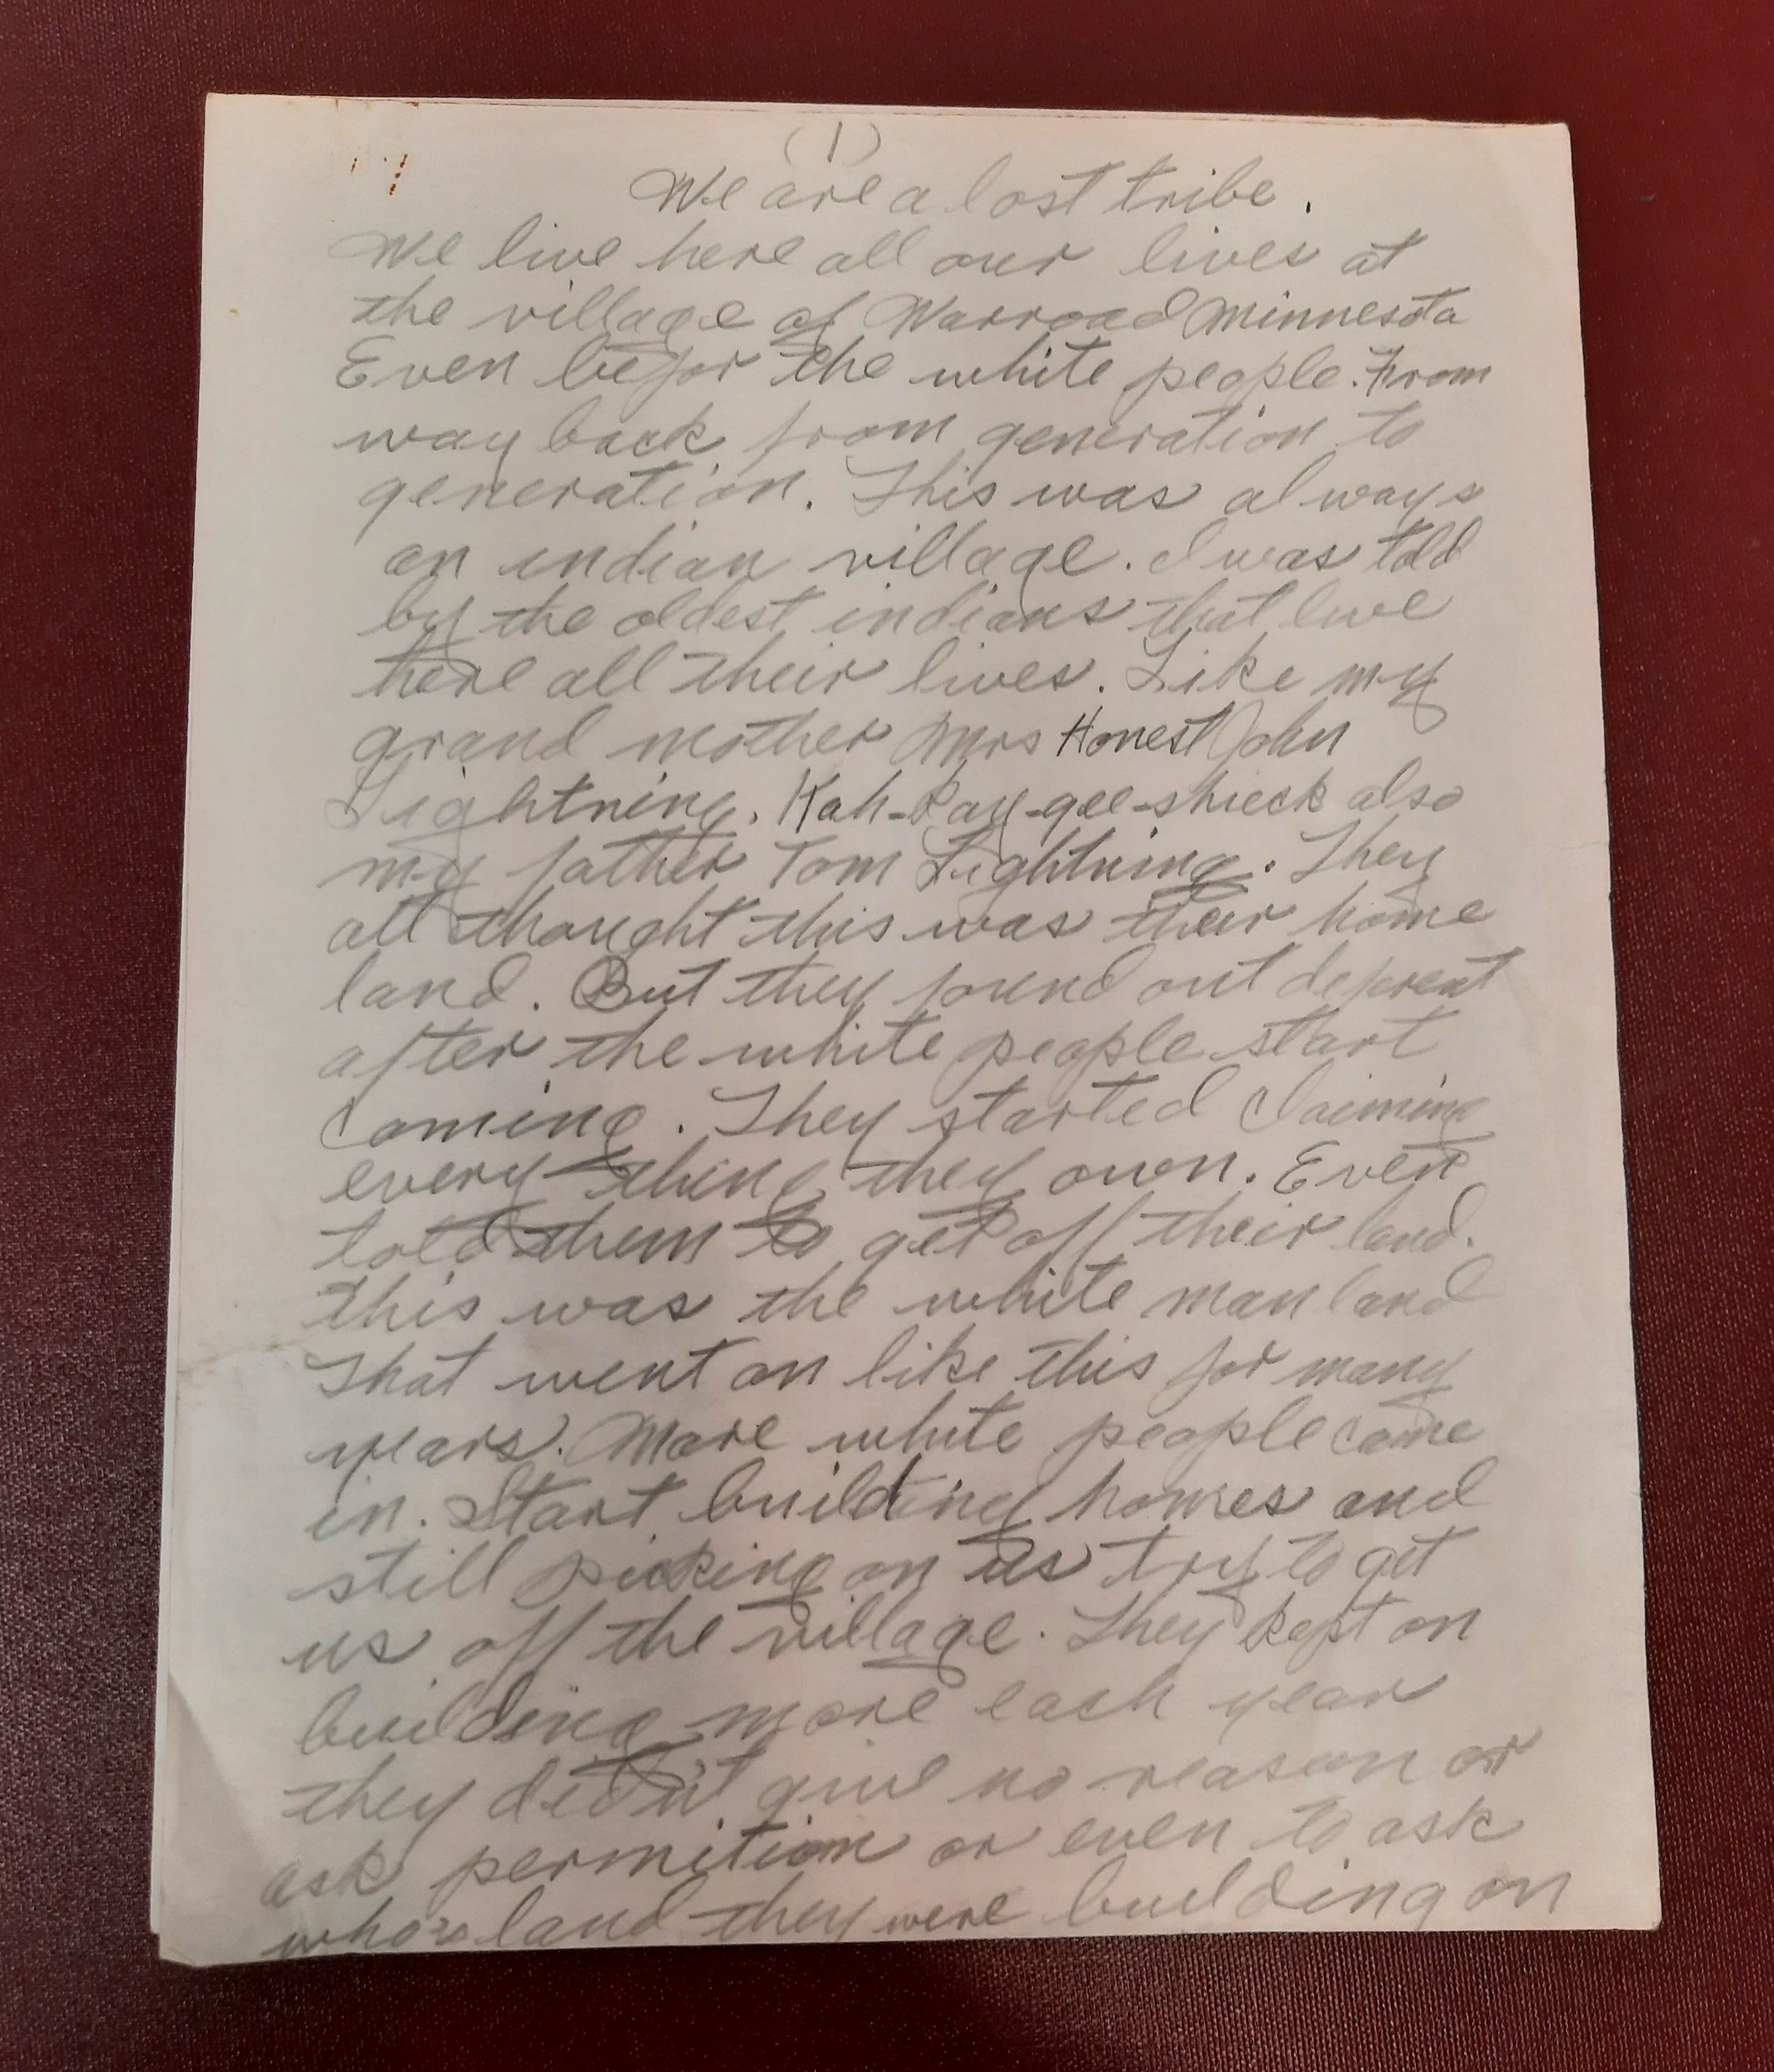 (1)
We are a lost tribe.
We live here all our lives at
the village of Warroad Minnesota
Even befor the white people. From
way back from generation to
generation. This was always
an indian village. I was told
by the oldest indians that live
here all their lives. Like my
grand mother Mrs Honest John
Lightning. Kah-Kay-gee-sheck also
my father Tom Lightning. They
all thought this was their home
land. But they found out deferent
after the white people start
coming. They started claiming
every thing they own. Even
told them to get off their land.
this was the white man land
That went on like this for many
years. More white people came
in. Start building homes and
still picking on us try to get
us off the village. They kept on
building more each year
they didn't give no reason or
ask permition or even to ask
who's land they were building on